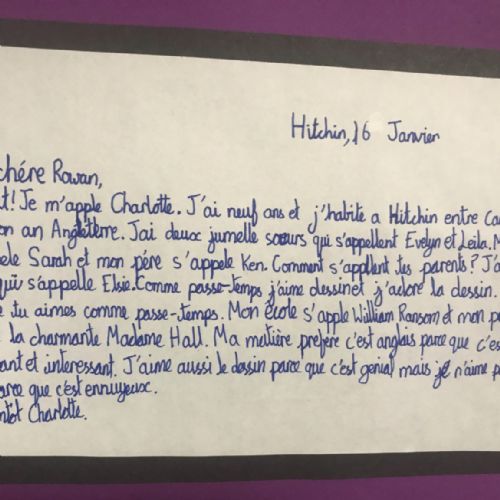 Hitchin, 16 Janvier
chére Rowan,
t! Je m'apple Charlotte. J'ai neuf ans et j'habite a Hitchin entre Ca
on an Angleterre. J'ai deux jumelle sœurs qui s'appellent Evelyn et Leila. M
ele Sarah et mon père s'appele Ken. Comment s'applent tes parents? J'a
qui s'appelle Elsie. Comme passe-temps j'aime dessinet j'adore la dessin.
e tu aimes comme passe-temps. Mon école s'apple William Ransom et mon p
la charmante Madame Hall. Ma matière prefere c'est anglais parce que c'es
ant et interessant. J'aime aussi le dessin parce que c'est genial mais je n'aime p
arce que c'est ennuyeux.
ntot Charlotte.